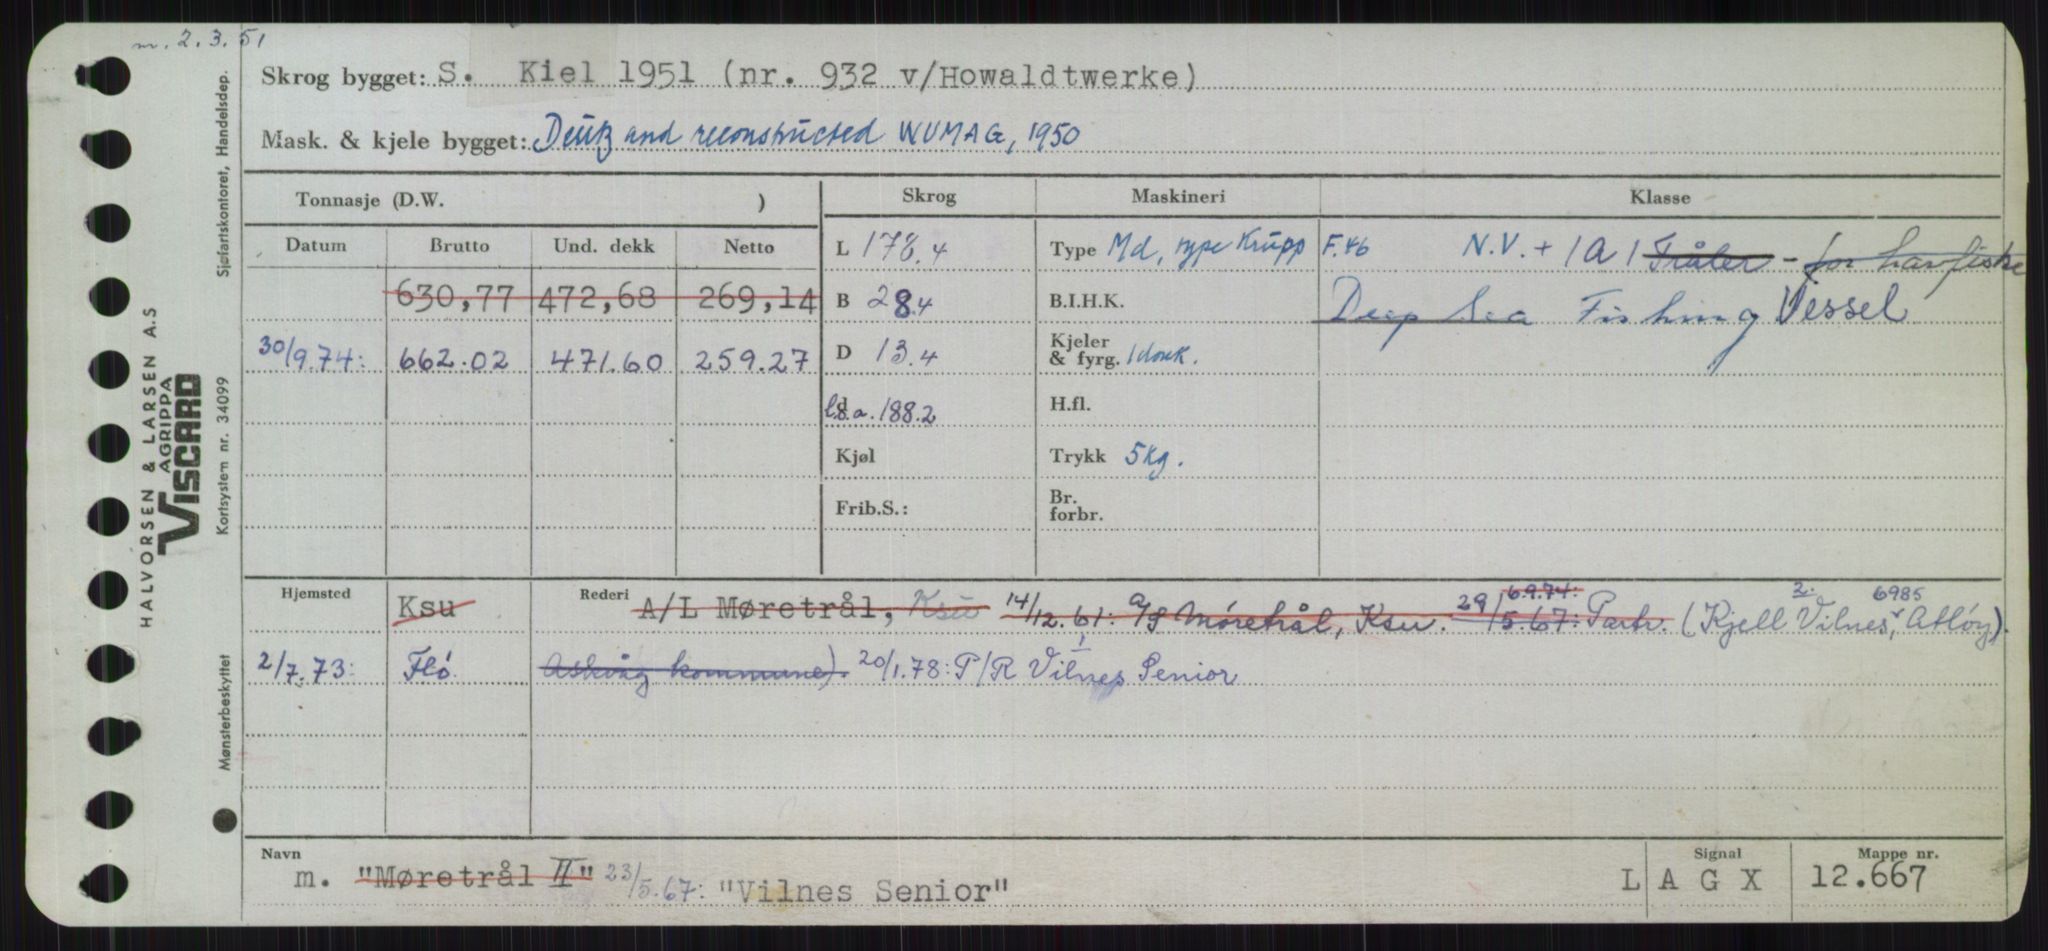 m. 2.3.51
Skrog bygget: S. Kiel 1951 (nr. 932 v/Howaldtwerke)
Mask. & kjele bygget: Deutz and reconstructed WUMAG, 1950
Tonnasje (D.W. )
Skrog
Maskineri
Klasse
Datum Brutto Und. dekk Netto
L 178.4
Type Md, type Krupp F.46
N.V. + 1A1 Tråler - for havfiske
630,77 472,68 269,14
B 28.4
B.I.H.K.
Deep Sea Fishing Vessel
30/9.74: 662.02 471.60 259.27
D 13.4
Kjeler & fyrg. 1 donk.
d
l.o.a. 188.2
H.fl.
Kjøl
Trykk 5kg.
Frib.S.:
Br. forbr.
Hjemsted Ksu
Rederi A/L Møretrål, Ksu 14/12.61: A/S Møretrål, Ksu. 29/5.67: 6.9.74: Partr. (Kjell Vilnes, 2. 6985 Atløy).
2/7.73: Flö
Askvåg kommune) 20/1.78: P/R Vilnes Senior
Navn
m. "Møretrål II" 23/5.67: "Vilnes Senior"
Signal
L A G X
Mappe nr.
12.667
HALVORSEN & LARSEN A.S
AGRIPPA
VISCARD
Sjøfartskontoret, Handelsdep.
Kortsystem nr. 34099
Mønsterbeskyttet